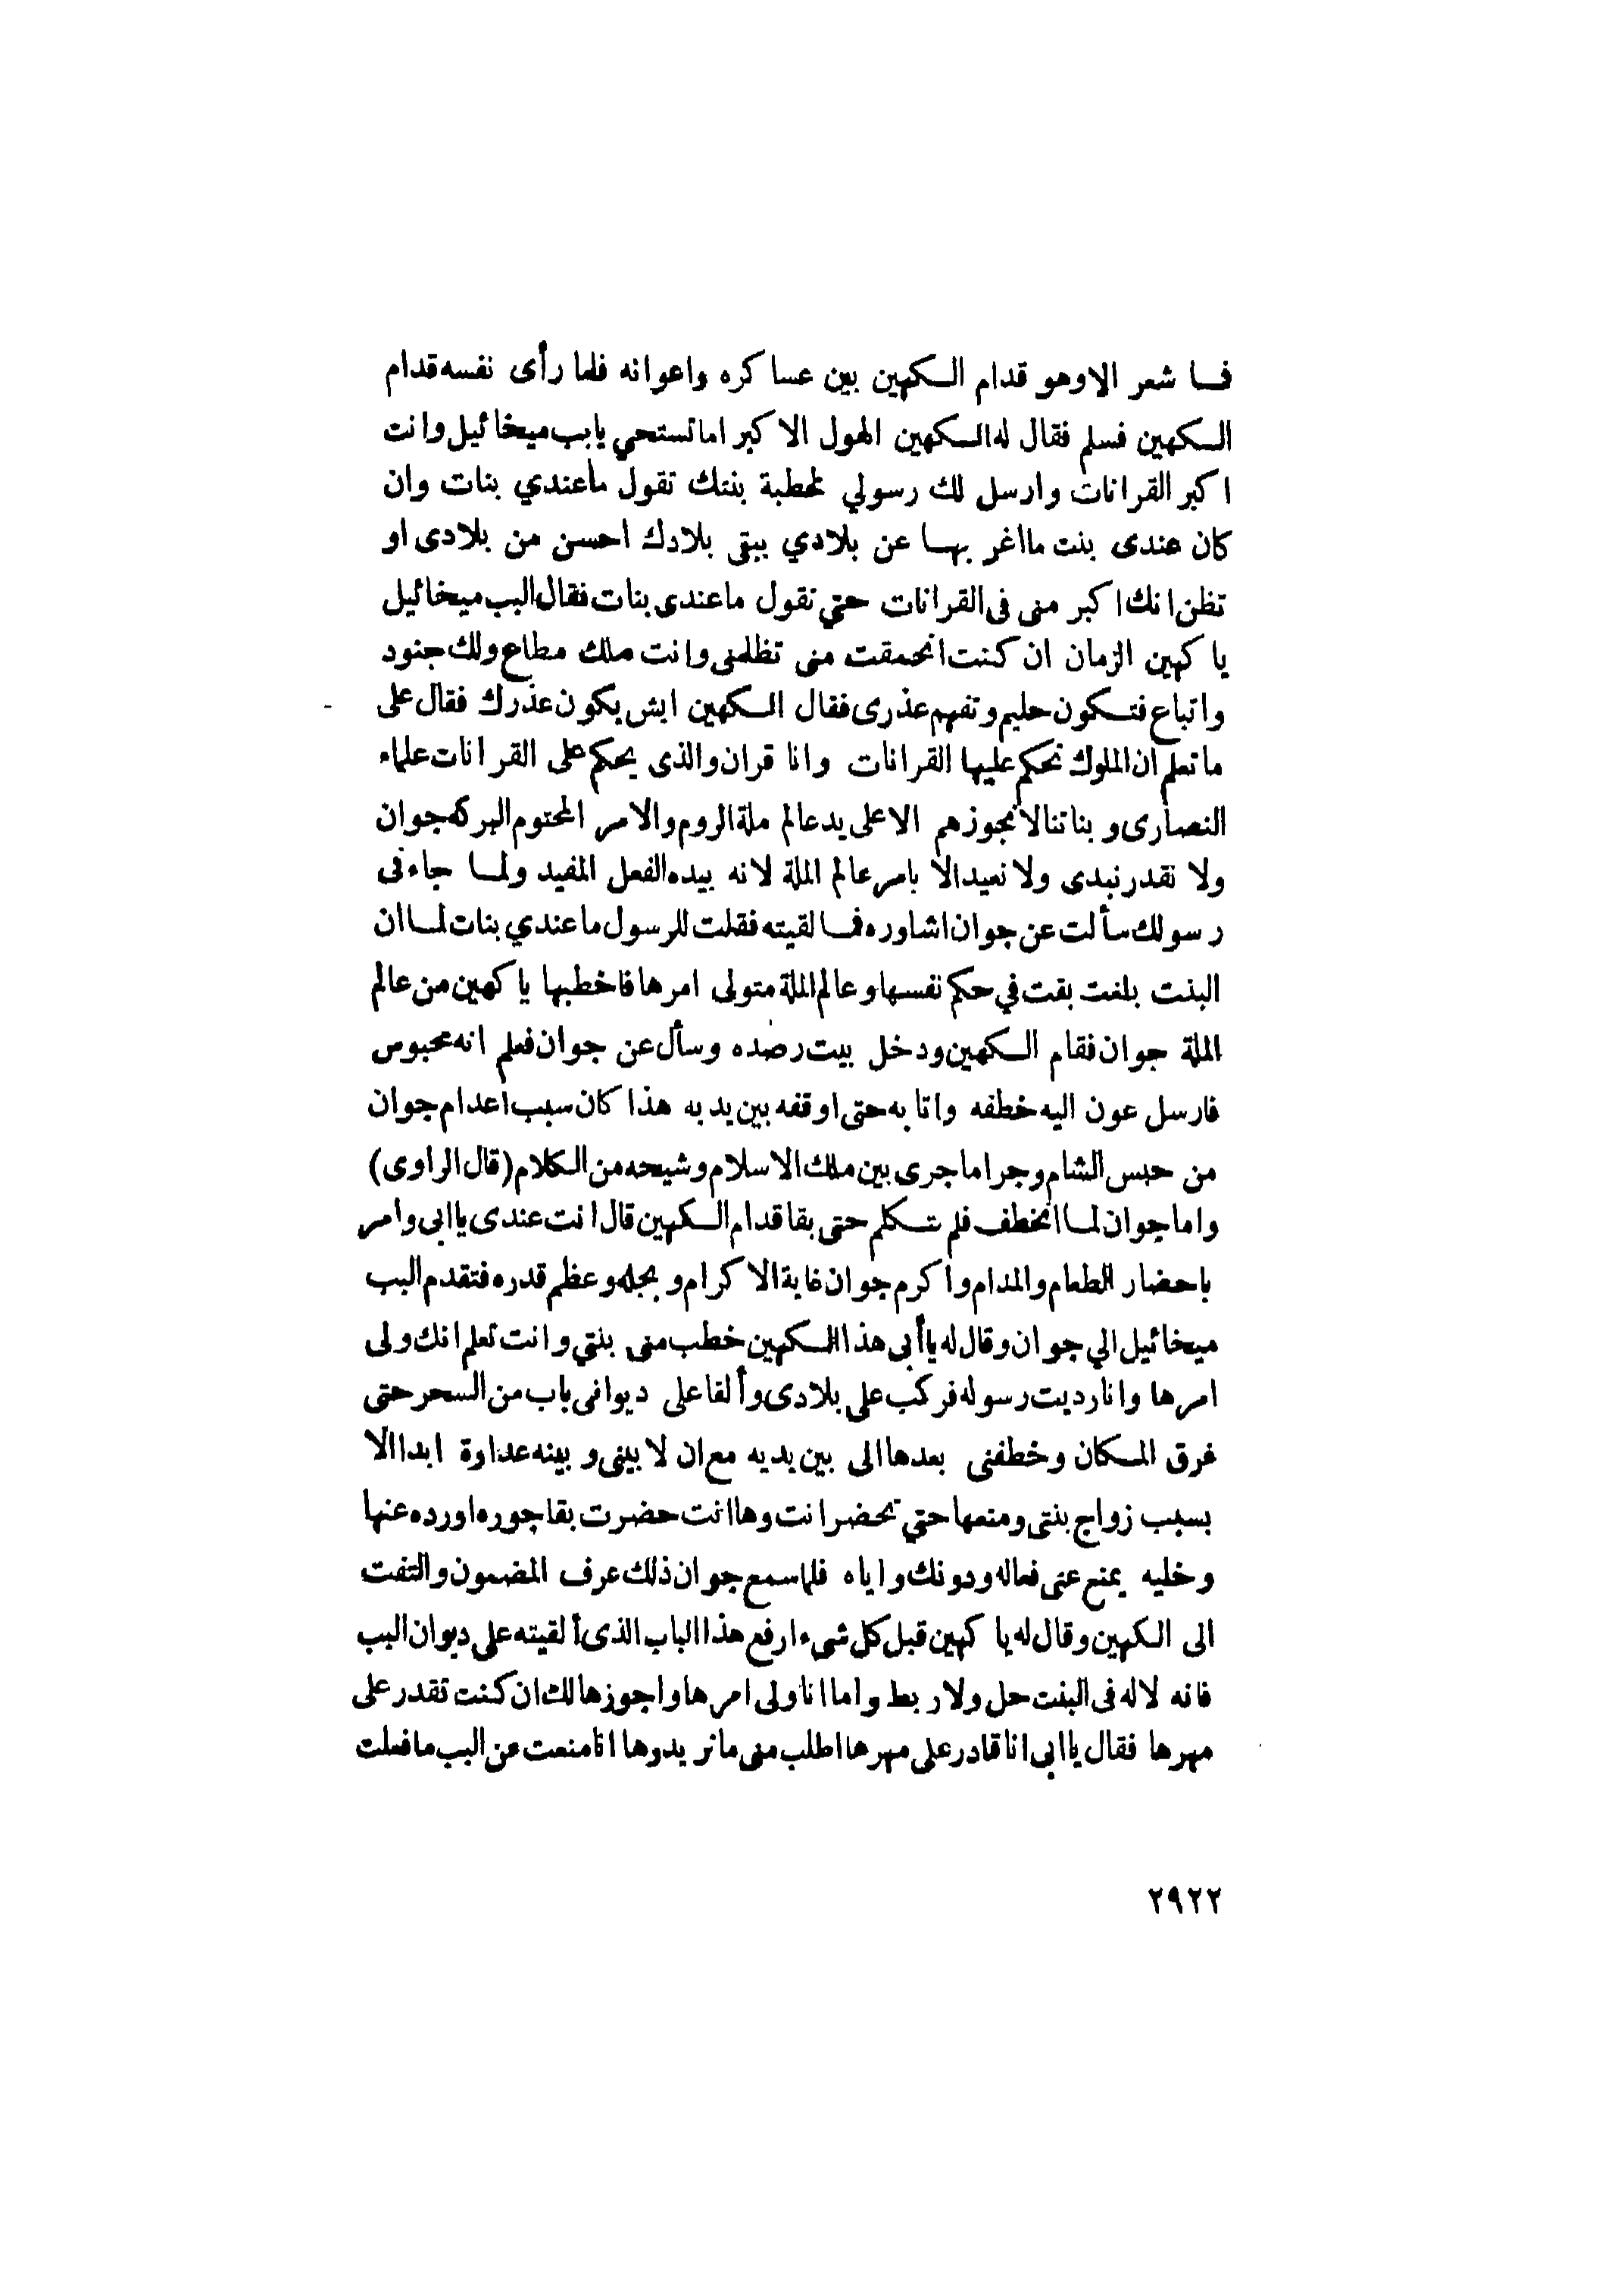 فما شعر الا وهو قدام الكهين بين عساكره واعوانه فلما رأى نفسه قدام
الكهين فسلم فقال له الكهين الهول الاكبر اما تستحي يا بب ميخائيل وانت
اكبر القرانات وارسل لك رسولي لخطبة بنتك تقول ماعندي بنات وان
كان عندى بنت مااغر بها عن بلادي يبقى بلادك احسن من بلادى او
تظن انك اكبر منى فى القرانات حتي تقول ماعندى بنات فقال البب ميخائيل
يا كهين الزمان ان كنت انحمقت منى تظلمنى وانت ملك مطاع ولك جنود
واتباع فتكون حليم وتفهم عذرى فقال الكهين ايش يكون عذرك فقال على
ما تعلم ان الملوك تحكم عليها القرانات وانا قران والذى يحكم على القرانات علماء
النصارى و بناتنا لا نجوزهم الا على يد عالم ملة الروم والامر المحتوم البركه جوان
ولا نقدر نبدى ولا نعيد الا بامر عالم الملة لانه بيده الفعل المفيد ولما جاءنى
رسولك سألت عن جوان اشاوره فما لقيته فقلت للرسول ماعندي بنات لما ان
البنت بلغت بقت في حكم نفسها وعالم الملة متولى امرها فاخطبها يا كهين من عالم
الملة جوان فقام الكهين ودخل بيت رصده وسأل عن جوان فعلم انه محبوس
فارسل عون اليه خطفه واتا به حتى اوقفه بين يديه هذا كان سبب اعدام جوان
من حبس الشام وجرا ماجرى بين ملك الاسلام وشيحه من الكلام (قال الراوى)
واما جوان لما انخطف فلم يتكلم حتى بقا قدام الكهين قال انت عندى يا ابى وامر
باحضار الطعام والمدام واكرم جوان غاية الاكرام و بجله وعظم قدره فتقدم البب
ميخائيل الي جوان وقال له يا أبى هذا الكهين خطب منى بنتي وانت تعلم انك ولى
امرها وانا رديت رسوله فركب على بلادى وألقا على ديوانى باب من السحر حتى
غرق المكان وخطفنى بعدها الى بين يديه مع ان لا بينى و بينه عداوة ابدا الا
بسبب زواج بنتى ومنعها حتي تحضر انت وها انت حضرت بقا جوره او رده عنها
وخليه يمنع عنى فعاله ودونك واياه فلما سمع جوان ذلك عرف المضمون والتفت
الى الكهين وقال له يا كهين قبل كل شىء ارفع هذا الباب الذى ألقيته على ديوان البب
فانه لا له فى البنت حل ولا ربط واما انا ولى امرها واجوزها لك ان كنت تقدر على
مهرها فقال يا ابى انا قادر على مهرها اطلب منى ما تريد وها انا منعت عن البب ما فعلت
٢٩٢٢